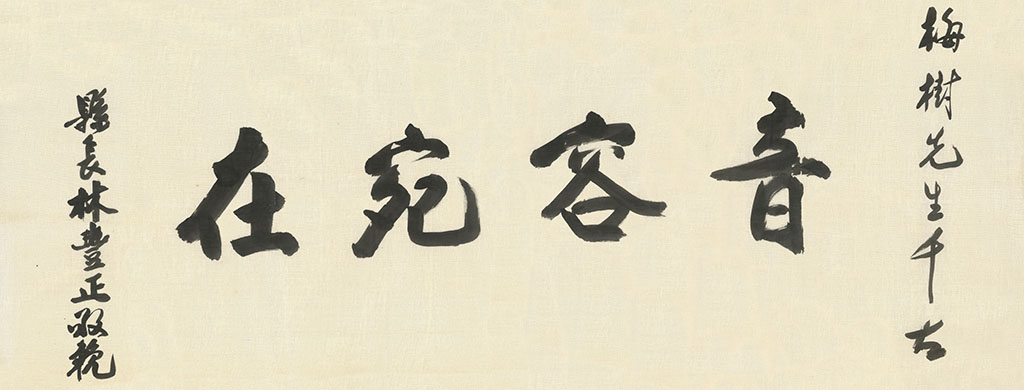 梅樹先生千古
音容宛在
縣長林豊正敬輓